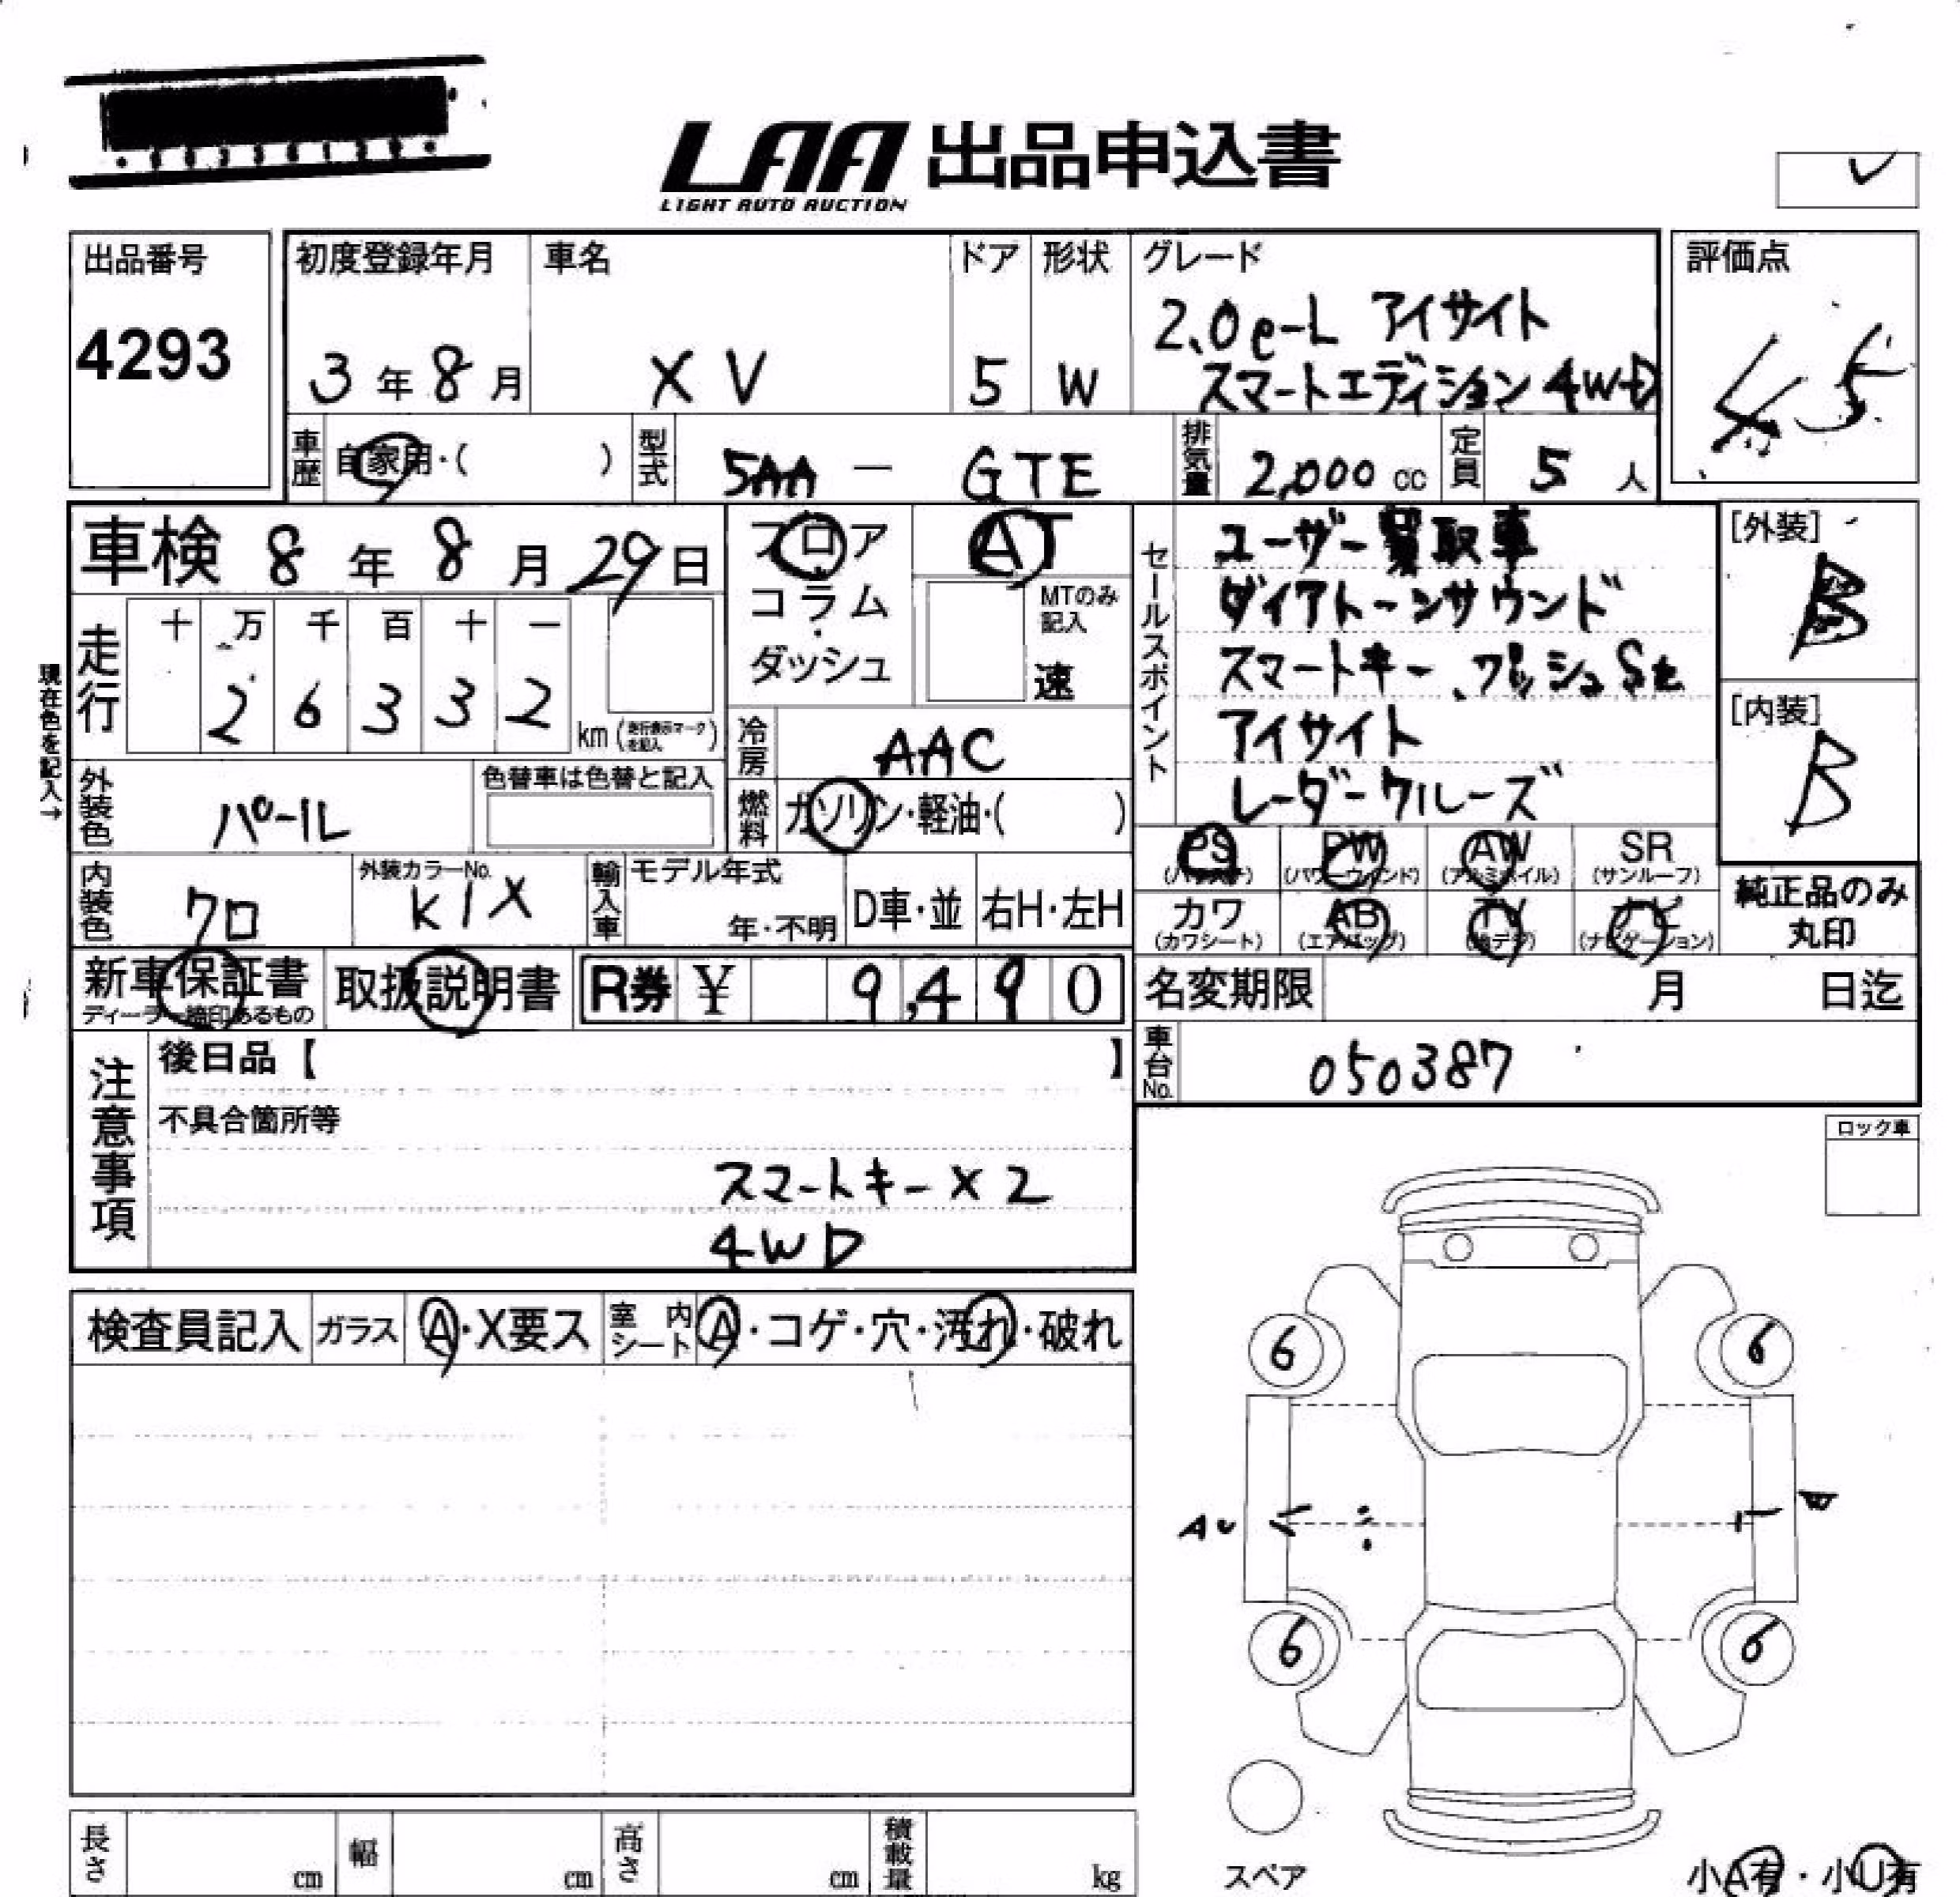 LAA 出品申込書
LIGHT AUTO AUCTION
出品番号
4293
初度登録年月
3年8月
車名
XV
ドア
5
形状
W
グレード
2.0e-L アイサイト
スマートエディション4WD
評価点
4.5
車歴 自家用・( )
型式 5AA — GTE
排気量 2,000cc
定員 5人
車検 8年8月29日
フロア
コラム
・
ダッシュ
AT
MTのみ
記入
速
セールスポイント
ユーザー買取車
ダイアトーンサウンド
スマートキー、プッシュSt
アイサイト
レーダークルーズ
[外装]
B
[内装]
B
現在色を記入→
走行
十 万 千 百 十 一
2 6 3 3 2
km (走行表示マークを記入)
冷房 AAC
外装色 パール
色替車は色替と記入
燃料 ガソリン・軽油・( )
内装色 クロ
外装カラーNo.
K1X
輸入車
モデル年式
年・不明
D車・並
右H・左H
PS PW AW SR
(パワステ) (パワーウィンド) (アルミホイル) (サンルーフ)
カワ AB TV ナビ
(カワシート) (エアバッグ) (地デジ) (ナビゲーション)
純正品のみ
丸印
新車保証書
ディーラー捺印あるもの
取扱説明書
R券 ¥ 9,490
名変期限 月 日迄
車台No. 050387
注意事項
後日品【 】
不具合箇所等
スマートキー×2
4WD
ロック車
検査員記入 ガラス A・X要ス 室内シート A・コゲ・穴・汚れ・破れ
6 6
AU
W
6 6
スペア
小A有・小U有
長さ cm 幅 cm 高さ cm 積載量 kg